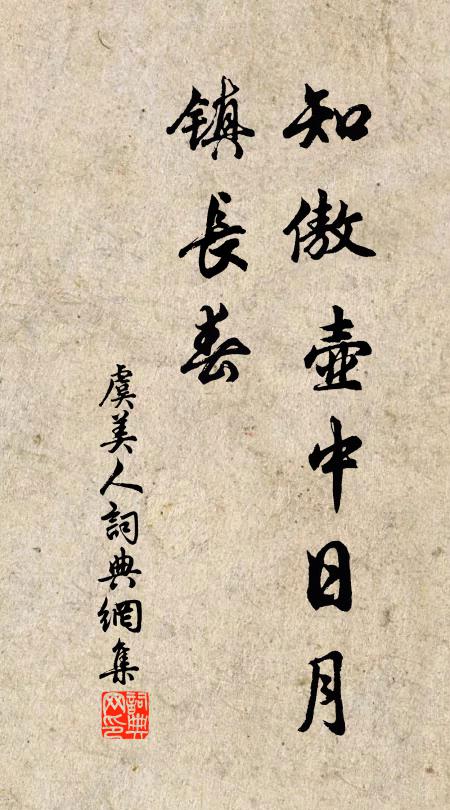 知傲壺中日月
鎮長春
虞美人詞典網集
詞典
网印